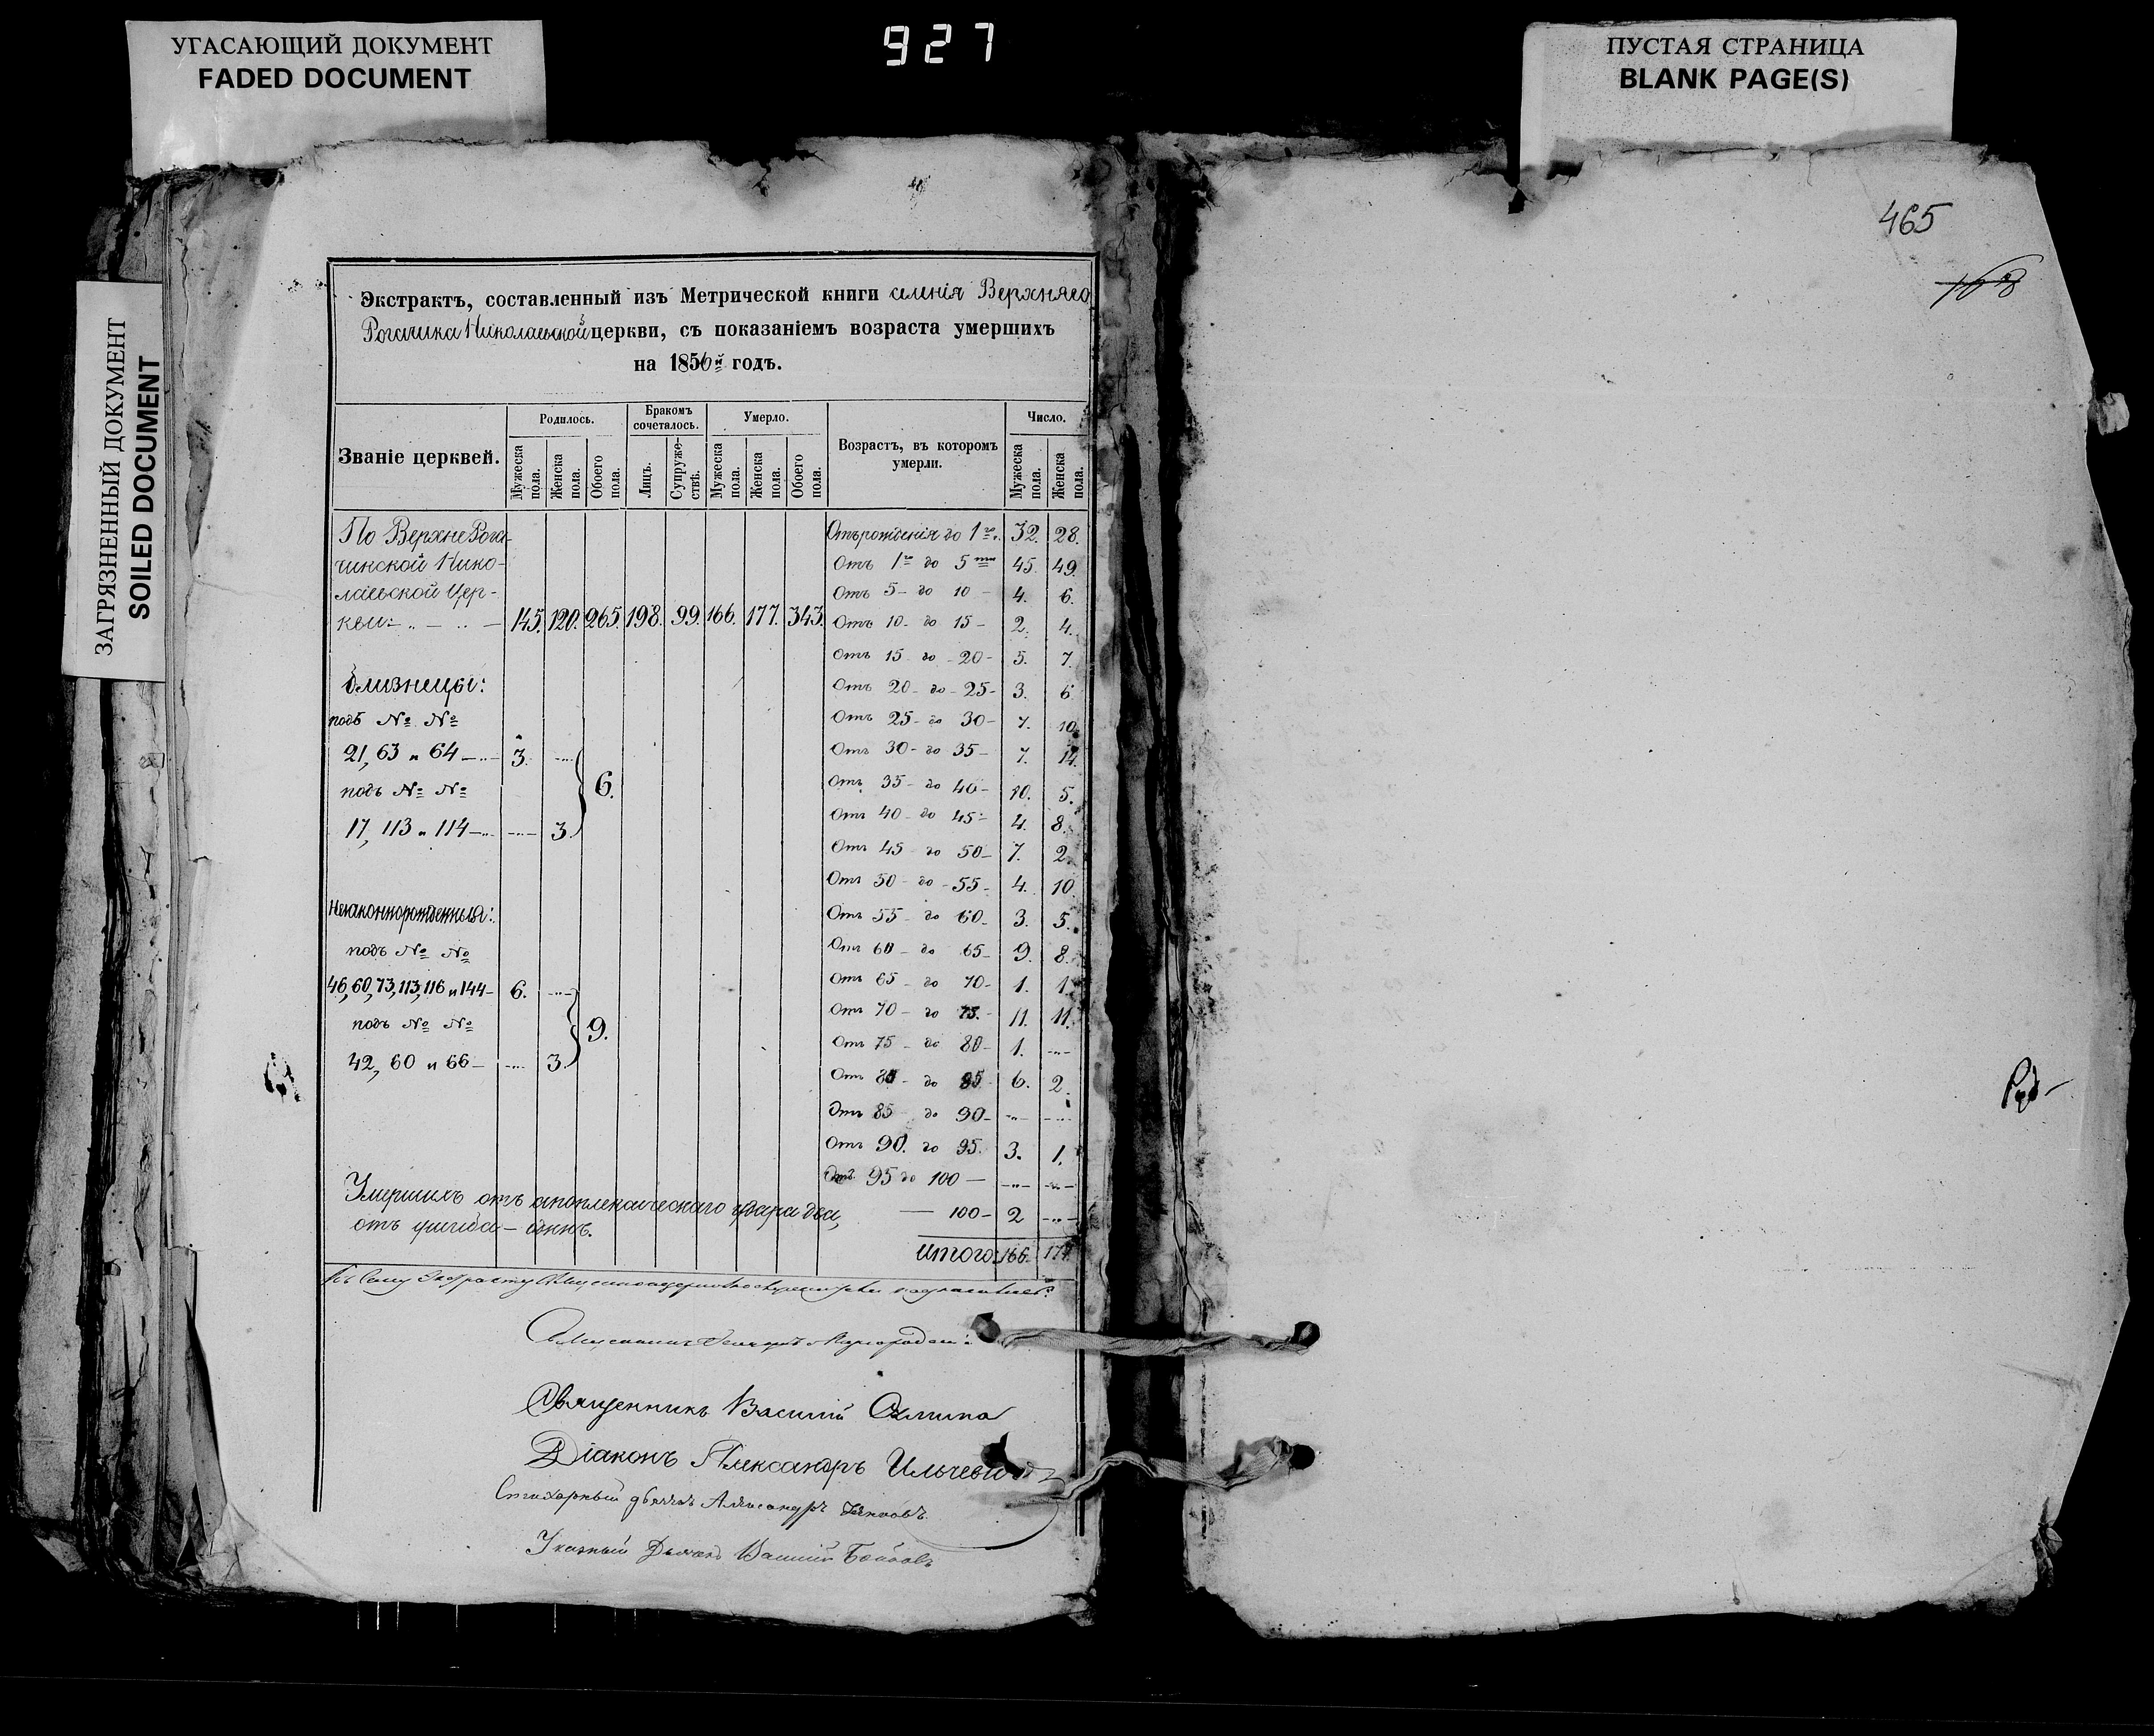 УГАСАЮЩИЙ ДОКУМЕНТ
FADED DOCUMENT
927
ПУСТАЯ СТРАНИЦА
BLANK PAGE(S)
ЗАГРЯЗНЕННЫЙ ДОКУМЕНТ
SOILED DOCUMENT
465
Экстрактъ, составленный изъ Метрической книги Верхняго
Рогачика Николаевской церкви, съ показаніемъ возраста умершихъ
на 1856й годъ.
Званіе церквей. Родилось. Бракомъ сочеталось. Умерло. Возрастъ, въ которомъ умерли. Число.
Мужеска пола. Женска пола. Обоего пола. Лицъ. Супружествъ. Мужеска пола. Женска пола. Обоего пола. Мужеска пола. Женска пола.
По Верхне Рога-
чинской Нико-
лаевской Цер-
кви- 145. 120. 265. 198. 99. 166. 177. 343.
Близнецы:
подъ № №
21, 63 и 64 3.
6.
подъ № №
17, 113 и 114 3.
Незаконнорожденные:
подъ № №
46, 60, 73, 113, 116 и 144 6.
9.
подъ № №
42, 60 и 66 3.
Отъ рожденія до 1го. 32. 28.
Отъ 1го до 5ти 45. 49.
Отъ 5 до 10 4. 6.
Отъ 10 до 15 2. 4.
Отъ 15 до 20 5. 7.
Отъ 20 до 25 3. 6
Отъ 25 до 30 7. 10.
Отъ 30 до 35 7. 14.
Отъ 35 до 40 10. 5.
Отъ 40 до 45 4. 8.
Отъ 45 до 50 7. 2.
Отъ 50 до 55 4. 10.
Отъ 55 до 60 3. 5.
Отъ 60 до 65 9. 8.
Отъ 65 до 70 1. 1.
Отъ 70 до 75 11. 11.
Отъ 75 до 80 1.
Отъ 80 до 85 6. 2.
Отъ 85 до 90
Отъ 90 до 95. 3. 1.
Отъ 95 до 100
100 2
Итого: 166. 177.
Умершихъ отъ апоплексическаго удара два,
отъ ушиба - одинъ.
Къ сему Экстракту
Священникъ
Священникъ Василій
Діаконъ Александръ Ильчевичъ
Стихарный дьячекъ Александръ
Указный Дьячекъ Василій